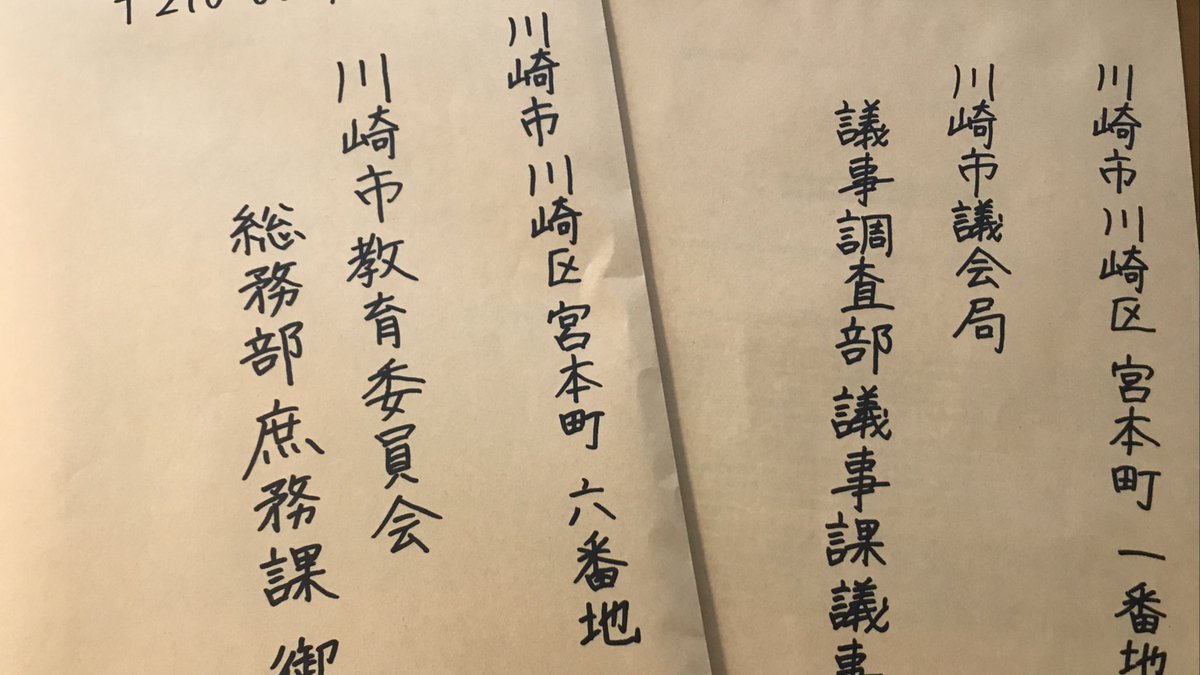 川崎市川崎区宮本町一番地
川崎市議会局
議事調査部議事課議事
川崎市川崎区宮本町六番地
川崎市教育委員会
総務部庶務課御